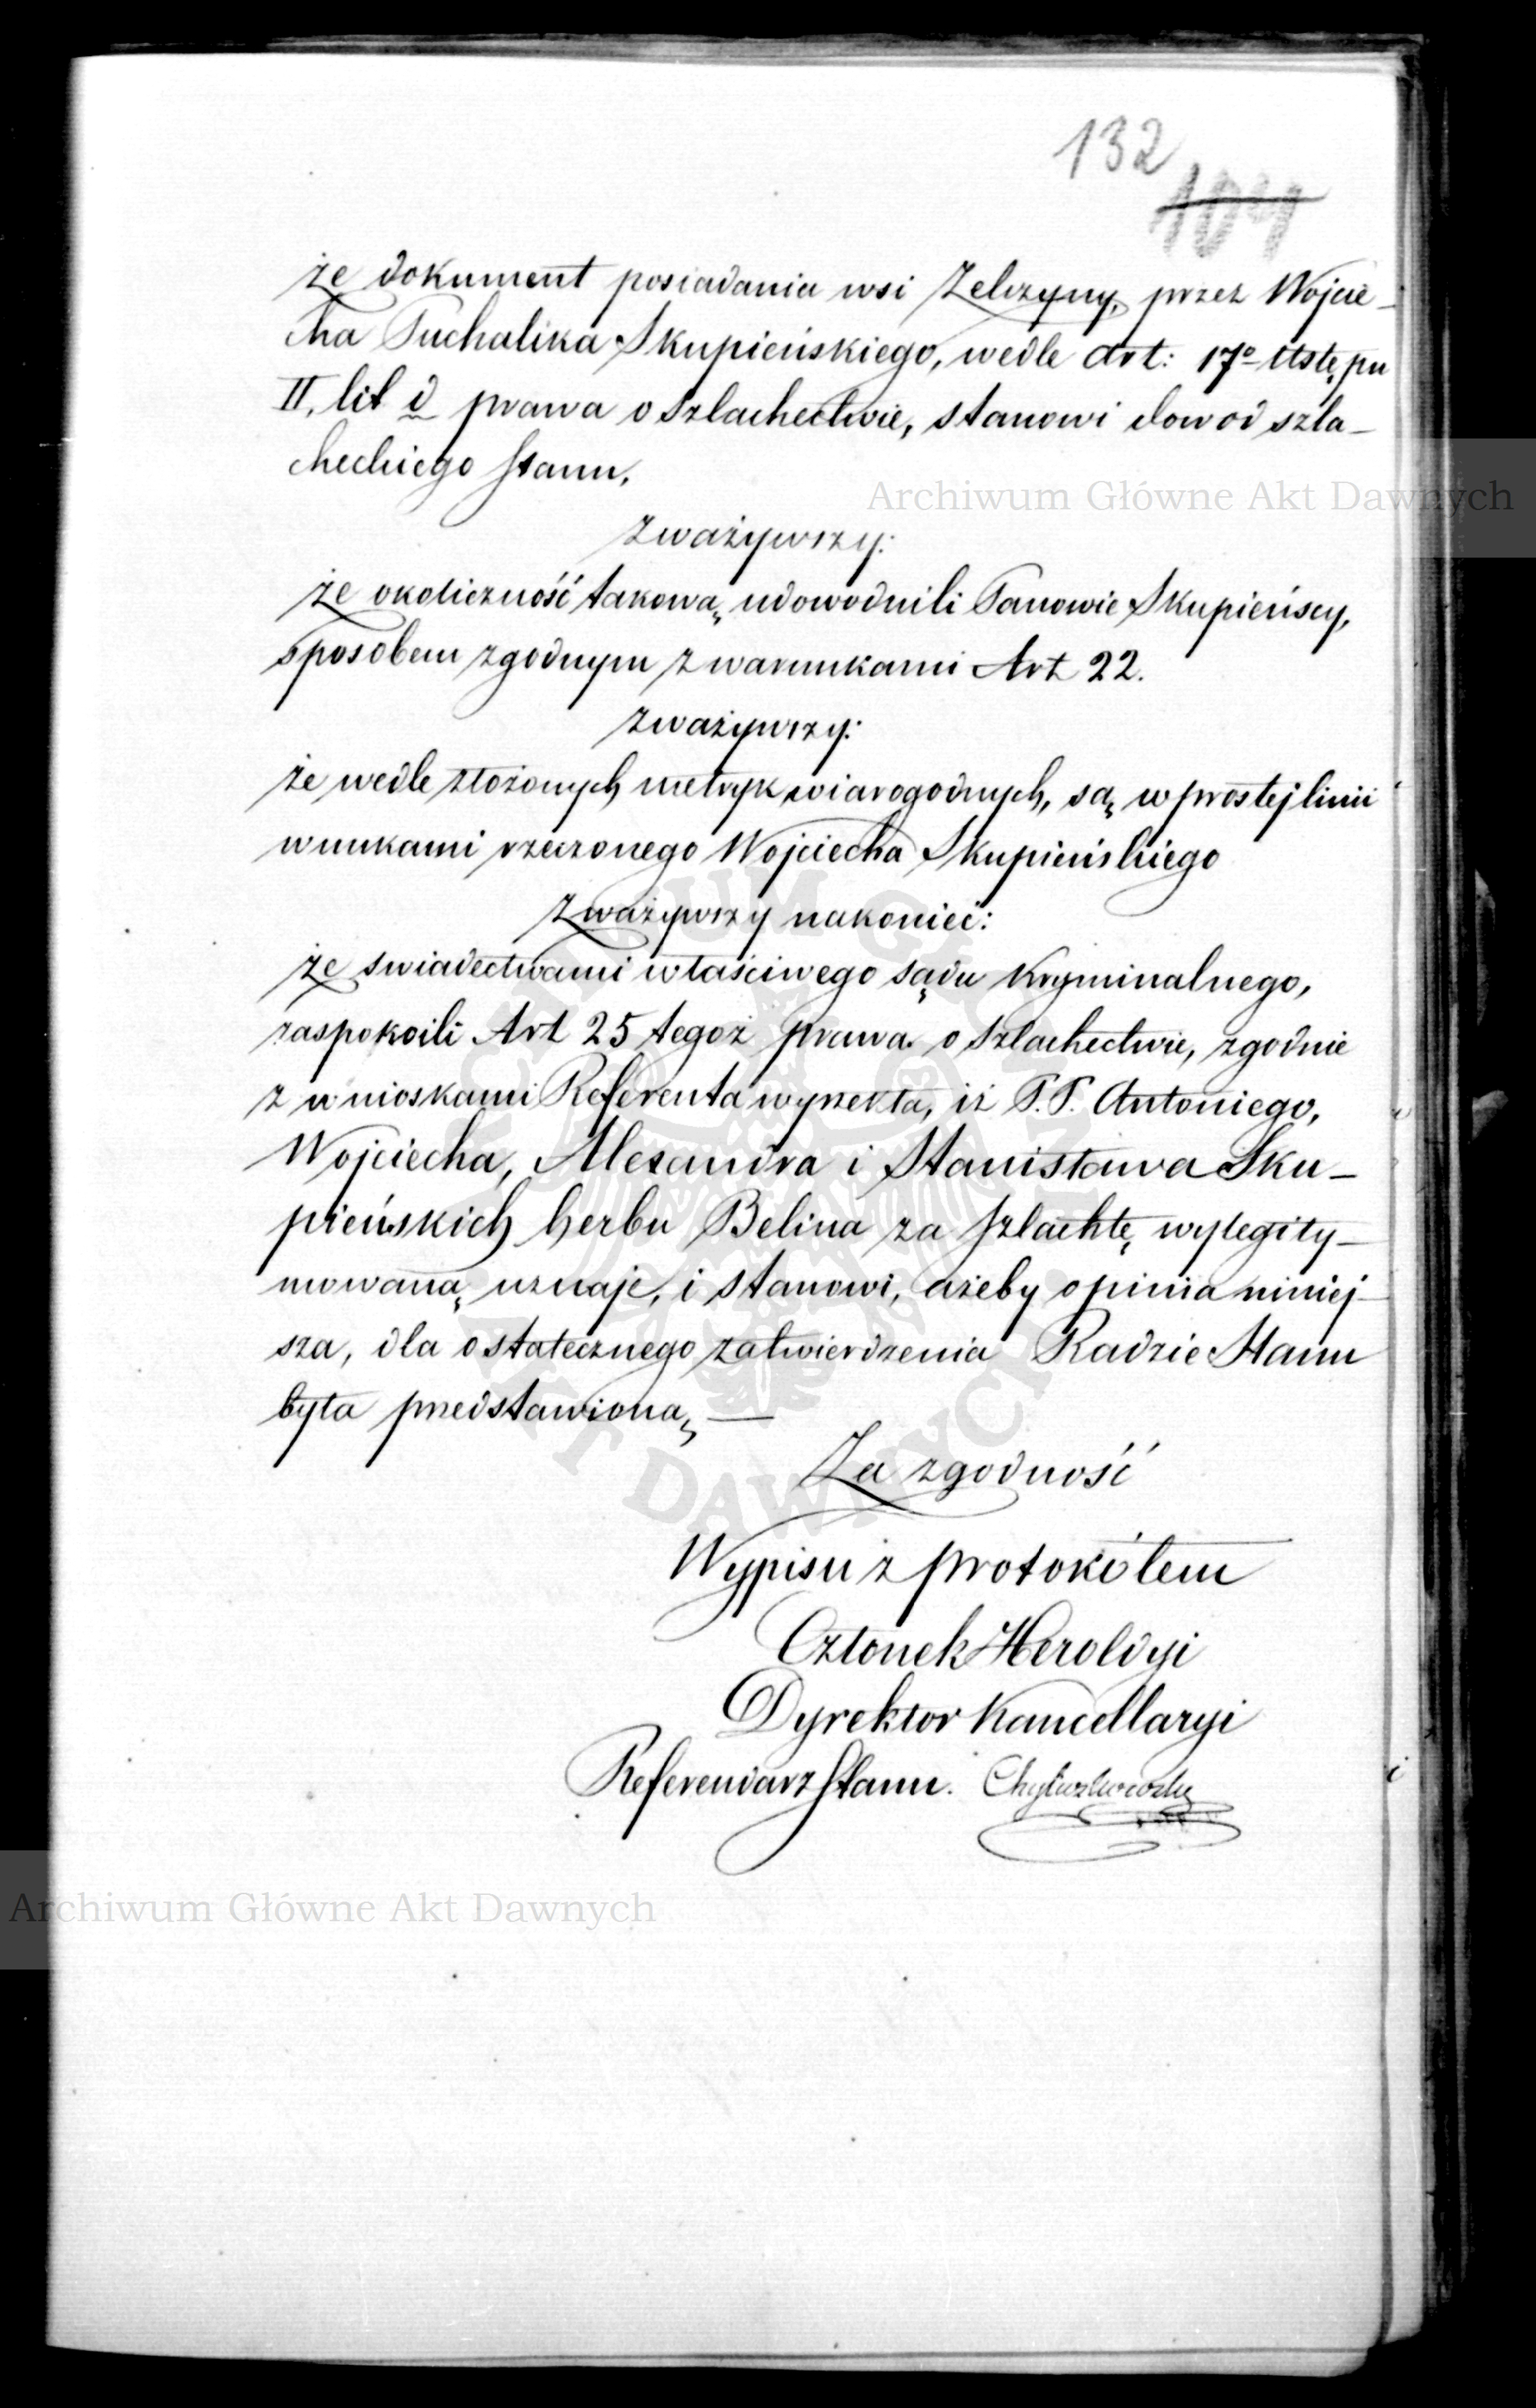 132
104
że dokument posiadania wsi Zelczyny, przez Wojcie-
cha Puchalika Skupieńskiego, wedle Art: 17o Ustępu
II, lit d prawa o szlachectwie, stanowi dowod szla-
checkiego stanu,
Zważywszy:
że okoliczność takową udowodnili Panowie Skupieńscy,
sposobem zgodnym z warunkami Art 22.
Zważywszy:
że wedle złożonych metryk wiarogodnych, są w prostej linii
wnukami rzeczonego Wojciecha Skupieńskiego
Zważywszy nakoniec:
że swiadectwami właściwego sądu kryminalnego,
zaspokoili Art 25 tegoż prawa o szlachectwie, zgodnie
z wnioskami Referenta wyrzekła, iż P.P. Antoniego,
Wojciecha, Alexandra i Stanisława Sku-
pieńskich herbu Belina za szlachtę wylegity-
mowaną uznaje, i stanowi, ażeby opinia niniej-
sza, dla ostatecznego zatwierdzenia Radzie Stanu
była przedstawioną, —
Za zgodność
Wypisu z protokółem
Członek Heroldyi
Dyrektor Kancellaryi
Referendarz Stanu.
Archiwum Główne Akt Dawnych
Archiwum Główne Akt Dawnych